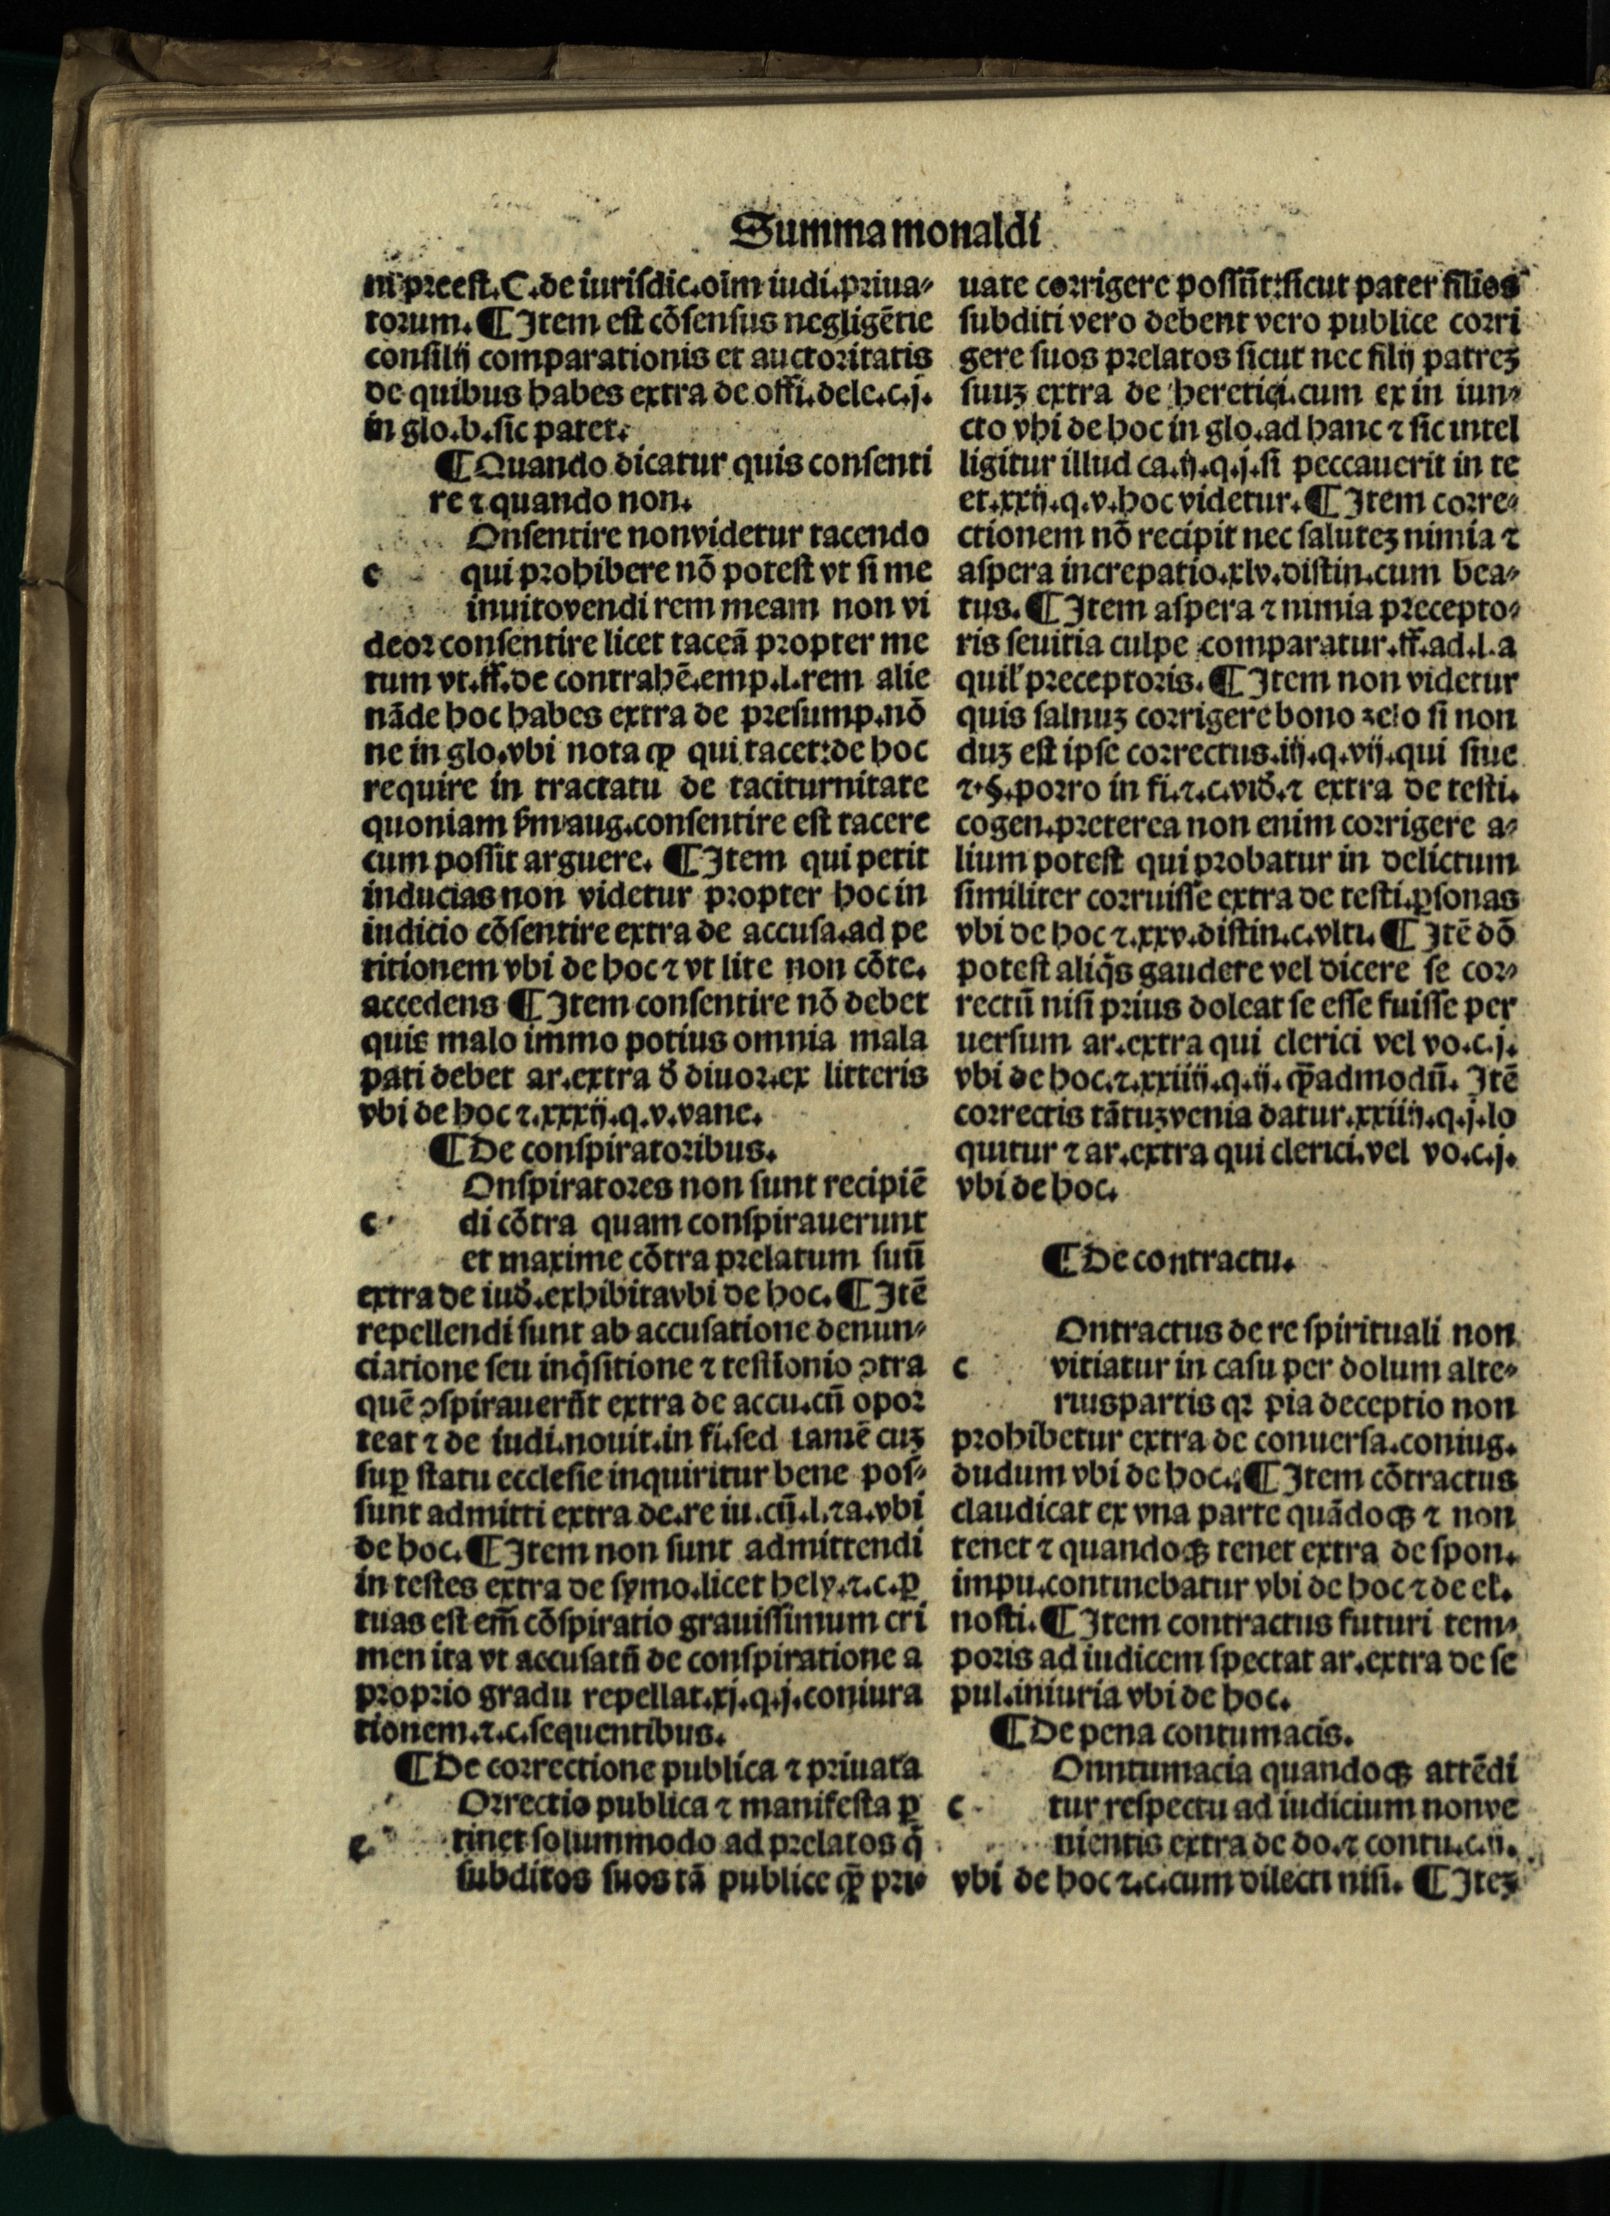 Summa monaldi
ni preest.C.de iurisdic.oīm iudi.priua-
torum.¶Item est cōsensus negligētie
consilij comparationis et auctoritatis
de quibus habes extra de offi.dele.c.j.
in glo.b.sic patet.
¶Quando dicatur quis consenti
re ⁊ quando non.
Onsentire nonvidetur tacendo
c qui prohibere nō potest vt si me
inuitovendi rem meam non vi
deor consentire licet taceā propter me
tum vt.ff.de contrahē.emp.l.rem alie
nāde hoc habes extra de presump.nō
ne in glo.vbi nota ꝙ qui tacet:de hoc
require in tractatu de taciturnitate
quoniam ẜm aug.consentire est tacere
cum possit arguere. ¶Item qui petit
inducias non videtur propter hoc in
iudicio cōsentire extra de accusa.ad pe
titionem vbi de hoc ⁊ vt lite non cōte.
accedens ¶Item consentire nō debet
quis malo immo potius omnia mala
pati debet ar.extra ð diuor.ex litteris
vbi de hoc ⁊.xxxij.q.v.vane.
¶De conspiratoribus.
Onspiratores non sunt recipiē
c di cōtra quam conspirauerunt
et maxime cōtra prelatum suū
extra de iuð.exhibitavbi de hoc.¶Itē
repellendi sunt ab accusatione denun-
ciatione seu inq̄sitione ⁊ testīonio ↄtra
quē ↄspirauerūt extra de accu.cū opor
teat ⁊ de iudi.nouit.in fi.sed tamē cuʒ
suꝑ statu ecclesie inquiritur bene pos-
sunt admitti extra de.re iu.cū.l.⁊a.vbi
de hoc.¶Item non sunt admittendi
in testes extra de symo.licet hely.⁊.c.ꝑ
tuas est em̄ cōspiratio grauissimum cri
men ita vt accusatū de conspiratione a
proprio gradu repellat.xj.q.j.coniura
tionem.⁊.c.sequentibus.
¶De correctione publica ⁊ priuata
Orrectio publica ⁊ manifesta ꝑ
c tinet solummodo ad prelatos q̄
subditos suos tā publice ꝙ̄ pri-
uate corrigere possūt:sicut pater filios
subditi vero debent vero publice corri
gere suos prelatos sicut nec filij patreʒ
suuʒ extra de heretici.cum ex in iun-
cto vbi de hoc in glo.ad hanc ⁊ sic intel
ligitur illud ca.ij.q.j.si peccauerit in te
et.xxij.q.v.hoc videtur.¶Item corre-
ctionem nō recipit nec saluteʒ nimia ⁊
aspera increpatio.xlv.distin.cum bea-
tus.¶Item aspera ⁊ nimia precepto-
ris seuitia culpe comparatur.ff.ad.l.a
quil' preceptoris.¶Item non videtur
quis salnuʒ corrigere bono zelo si non
duʒ est ipse correctus.iij.q.vij.qui siue
⁊.§.porro in fi.⁊.c.við.⁊ extra de testi.
cogen.preterea non enim corrigere a-
lium potest qui probatur in delictum
similiter corruisse extra de testi.ꝑsonas
vbi de hoc ⁊.xxv.distin.c.vlti.¶Itē dō
potest aliq̄s gaudere vel dicere se cor-
rectū nisi prius doleat se esse fuisse per
uersum ar.extra qui clerici vel vo.c.j.
vbi de hoc.⁊.xxiiij.q.ij.ꝙ̄admodū. Itē
correctis tātuʒvenia datur.xxiiij.q.j.lo
quitur ⁊ ar.extra qui clerici.vel vo.c.j.
vbi de hoc.
¶De contractu.
Ontractus de re spirituali non
c vitiatur in casu per dolum alte-
riuspartis qꝛ pia deceptio non
prohibetur extra de conuersa.coniug.
dudum vbi de hoc.¶Item cōtractus
claudicat ex vna parte quādoqʒ ⁊ non
tenet ⁊ quandoqʒ tenet extra de spon.
impu.continebatur vbi de hoc ⁊ de el'.
nosti.¶Item contractus futuri tem-
poris ad iudicem spectat ar.extra de se
pul.iniuria vbi de hoc.
¶De pena contumacis.
Onntumacia quandoqʒ attēdi
c tur respectu ad iudicium nonve
nientis extra de do.⁊ contu.c.ij.
vbi de hoc ⁊.c.cum dilecti nisi. ¶Iteʒ